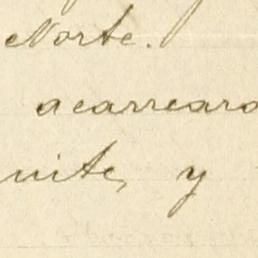 Norte.
acarrearo
nite, y